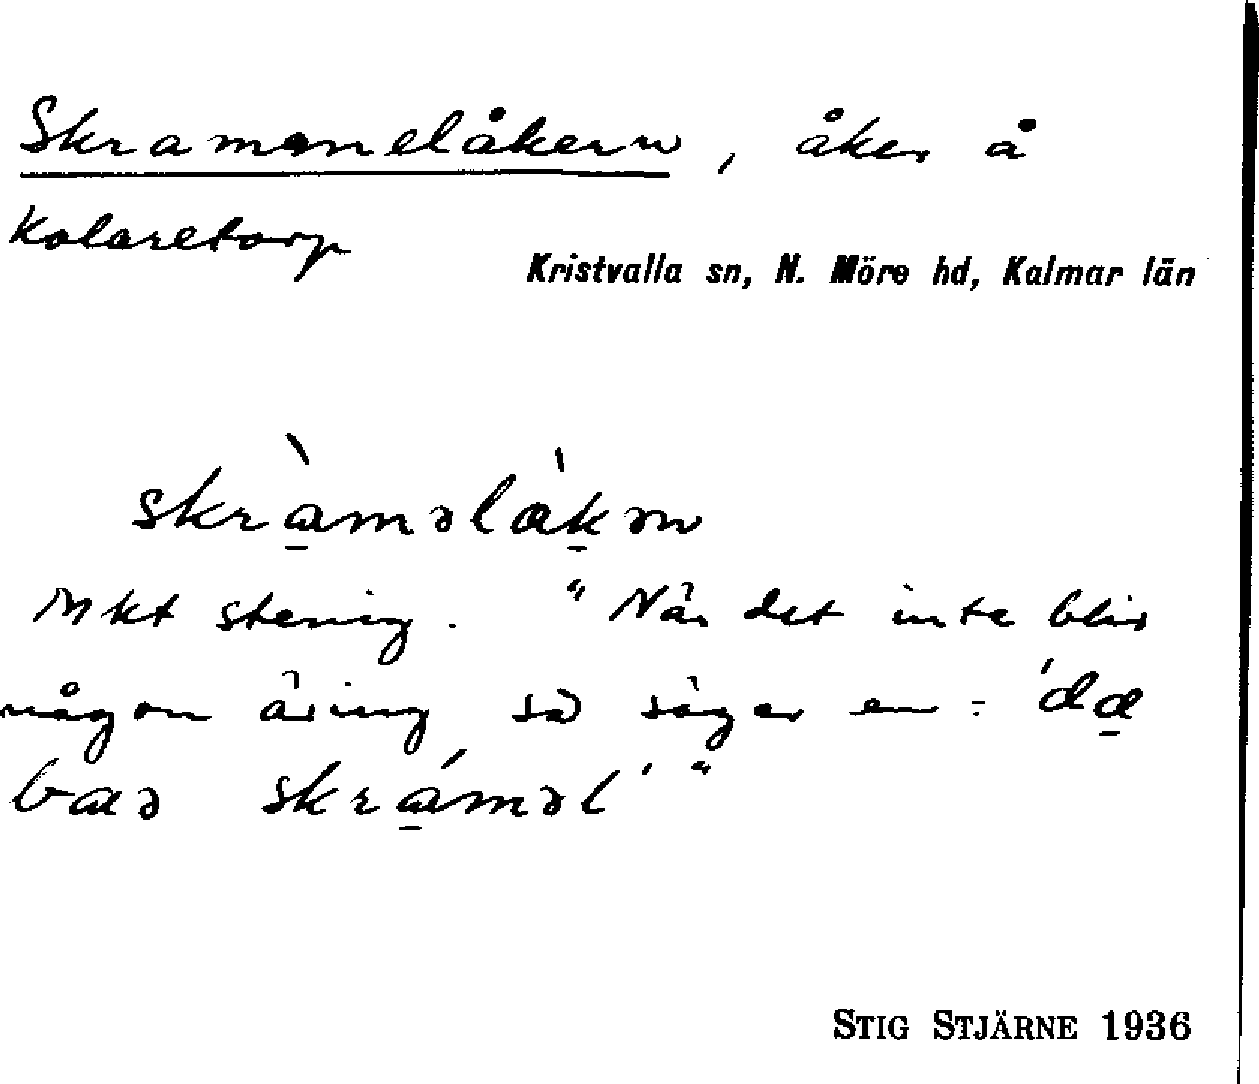 Skrammelåkern, åker å
Kolaretorp
Kristvalla sn, N. Möre hd, Kalmar län
skràməlàkən
Mkt stenig. "När det inte blir
någon äring så säger en: 'dæ
baə skráməl'"
STIG STJÄRNE 1936